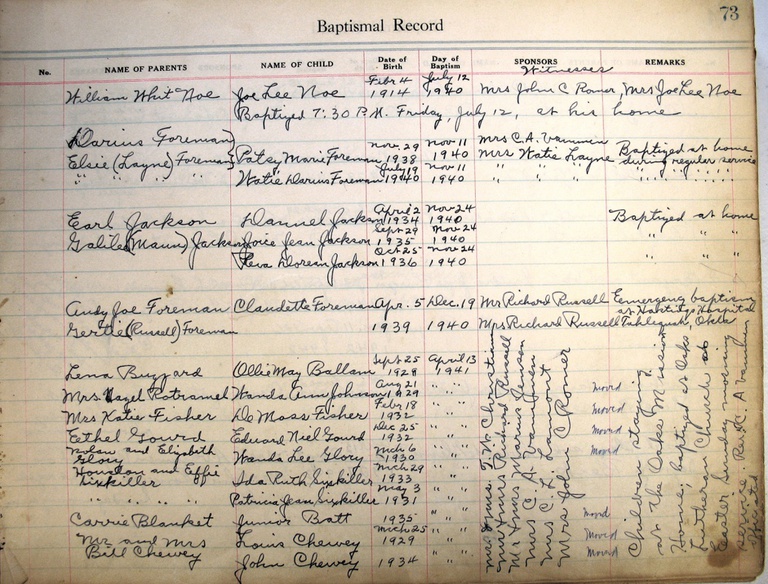 73
Baptismal Record
No. NAME OF PARENTS NAME OF CHILD Date of Birth Day of Baptism SPONSORS REMARKS
Witnesses
Febr 4 July 12
William Whit Noe Joe Lee Noe 1914 1940 Mrs John C Romer, Mrs Joe Lee Noe
Baptized 7:30 P.M. Friday, July 12, at his home
Darius Foreman Nov. 29 Nov 11 Mrs C.A. Baptized at home
Elsie (Layne) Foreman Patsy Marie Foreman 1938 1940 Mrs Watie Layne during regular service
July 19 Nov 11
" " " Watie Darius Foreman 1940 1940 " " " " " " "
April 2 Nov 24
Earl Jackson Dannel Jackson 1934 1940 Baptized at home
Sept 29 Nov 24
Galilee (Mann) Jackson Joice Jean Jackson 1935 1940 " " "
Oct 25 Nov 24
Reva Dorein Jackson 1936 1940 " " "
Andy Joe Foreman Claudette Foreman Apr. 5 Dec. 19 Mr Richard Russell Emergeny baptism
at Hastings Hospital
Gertie (Russell) Foreman 1939 1940 Mrs Richard Russell Tahlequah, Okla
Sept 25 April 13
Lena Buzzard Ollie May Ballam 1928 1941
Aug 21
Mrs Hazel Potramel Wanda Ann Johnson 1929 " " Moved
Febr 18
Mrs Katie Fisher Do Moss Fisher 1932 " " Moved
Dec 25
Ethel Gourd Edward Niel Gourd 1932 " " Moved
Nolan and Elizabeth Mich 6
Glory Wanda Lee Glory 1930 " " Moved
Houston and Effie Mich 29
Sixkiller Ida Ruth Sixkiller 1933 " "
May 3
" " " " Patricia Jean Sixkiller 1931 " "
Carrie Blanket Junior Batt 1935 " " Moved
Mr and Mrs Mich 25
Bill Chewey Louis Chewey 1929 " " Moved
John Chewey 1934 " " Moved
Mr & Mrs Richard Russell
Mr & Mrs Marius Jensen
Mrs C. A.
Mrs C. L. Lamont
Mrs John C Romer
Children staying
at The Oaks Mission
Home, baptized at Oaks
Lutheran Church at
Easter Sunday morning
service. Rev. C. A.